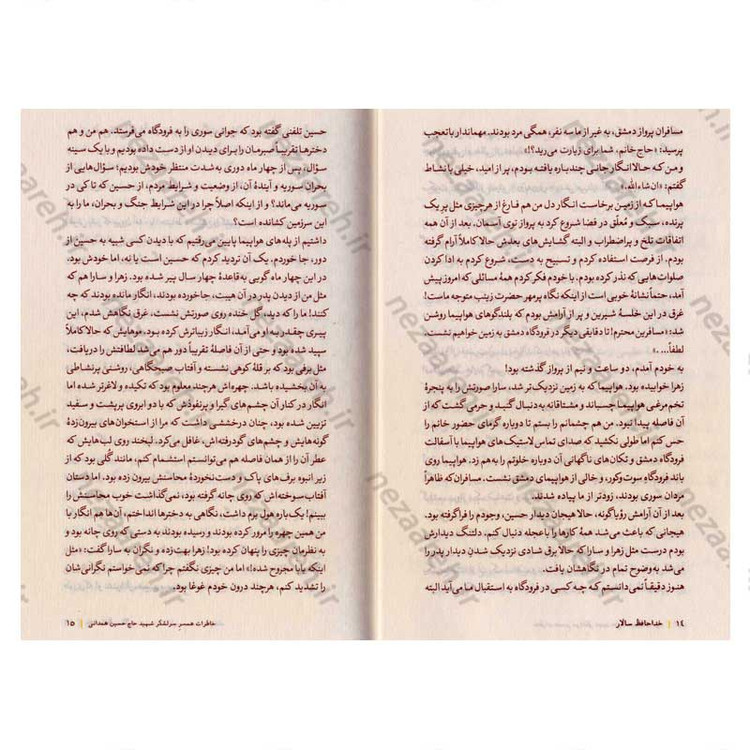 مسافران پرواز دمشق، به غیر از ما سه نفر، همگی مرد بودند. مهماندار با تعجب
پرسید: «حاج خانم، شما برای زیارت می‌رید؟!»
و من که حالا انگار جانی چندباره یافته بودم، پر از امید، خیلی با نشاط
گفتم: «ان شاءالله.»
هواپیما که از زمین برخاست انگار دل من هم فارغ از هر چیزی مثل پر یک
پرنده، سبک و معلق در فضا شروع کرد به پرواز توی آسمان. بعد از آن همه
اتفاقات تلخ و پراضطراب و البته گشایش‌های بعدش حالا کاملاً آرام گرفته
بودم. از فرصت استفاده کردم و تسبیح به دست، شروع کردم به ادا کردن
صلوات‌هایی که نذر کرده بودم. با خودم فکر کردم همهٔ مسائلی که امروز پیش
آمد، حتماً نشانهٔ خوبی است از اینکه نگاه پرمهر حضرت زینب متوجه ماست!
غرق در این خلسهٔ شیرین و پر از آرامش بودم که بلندگوهای هواپیما روشن
شد: «مسافرین محترم! تا دقایقی دیگر در فرودگاه دمشق به زمین خواهیم نشست.
لطفاً... .»
به خودم آمدم، دو ساعت و نیم از پرواز گذشته بود!
زهرا خوابیده بود. هواپیما که به زمین نزدیک‌تر شد، سارا صورتش را به پنجرهٔ
تخم‌مرغی هواپیما چسباند و مشتاقانه به دنبال گنبد و حرمی گشت که از
آن فاصله پیدا نبود. من هم چشمانم را بستم تا دوباره گرمای حضور خانم را
حس کنم اما طولی نکشید که صدای تماس لاستیک‌های هواپیما با آسفالت
فرودگاه دمشق و تکان‌های ناگهانی آن دوباره خلوتم را به هم زد. هواپیما روی
باند فرودگاه سوت‌وکور، و خالی از هواپیمای دمشق نشست. مسافران که ظاهراً
مردان سوری بودند، زودتر از ما پیاده شدند.
بعد از آن آرامش رؤیاگونه، حالا هیجان دیدار حسین، وجودم را فراگرفته بود.
هیجانی که باعث می‌شد همهٔ کارها را با عجله دنبال کنم. دلتنگ دیدارش
بودم درست مثل زهرا و سارا که حالا برق شادی نزدیک شدن دیدار پدر را
می‌شد به وضوح تمام در نگاهشان یافت.
هنوز دقیقاً نمی‌دانستم که چه کسی در فرودگاه به استقبال ما می‌آید البته
۱۴ | خداحافظ سالار
حسین تلفنی گفته بود که جوانی سوری را به فرودگاه می‌فرستد. هم من و هم
دخترها تقریباً صبرمان را برای دیدن او از دست داده بودیم و با یک سینه
سؤال، پس از چهار ماه دوری به‌شدت منتظر خودش بودیم. سؤال‌هایی از
بحران سوریه و آیندهٔ آن، از وضعیت و شرایط مردم، از حسین که تا کی در
سوریه می‌ماند؟ و از اینکه اصلاً چرا در این شرایط جنگ و بحران، ما را به
این سرزمین کشانده است؟
داشتیم از پله‌های هواپیما پایین می‌رفتیم که با دیدن کسی شبیه به حسین از
دور، جا خوردم. یک آن تردید کردم که حسین است یا نه، اما خودش بود.
در این چهار ماه گویی به قاعدهٔ چهار سال پیر شده بود. زهرا و سارا هم که
مثل من از دیدن پدر در آن هیبت، جا خورده بودند، انگار مانده بودند که چه
کنند! ما را که دید، گل خنده روی صورتش نشست، غرق نگاهش شدم، این
پیری چقدر به او می‌آمد، انگار زیباترش کرده بود. موهایش که حالا کاملاً
سپید شده بود و حتی از آن فاصله تقریباً دور هم می‌شد لطافتش را دریافت،
مثل برفی بود که بر قلهٔ کوهی نشسته و آفتاب صبحگاهی، روشنی پرنشاطی
به آن بخشیده باشد. چهره‌اش هرچند معلوم بود که تکیده و لاغرتر شده اما
انگار در کنار آن چشم‌های گیرا و پرنفوذش که با دو ابروی پرپشت و سفید
تزیین شده بود، چنان درخششی داشت که مرا از استخوان‌های بیرون‌زدهٔ
گونه‌هایش و چشم‌های گودرفته‌اش، غافل می‌کرد. لبخند روی لب‌هایش که
عطر آن را از همان فاصله هم می‌توانستم استشمام کنم، مانند گلی بود که از
زیر انبوه برف‌های پاک و دست‌نخوردهٔ محاسنش بیرون زده بود. اما دستان
آفتاب‌سوخته‌اش که روی چانه گرفته بود، نمی‌گذاشت خوب محاسنش را
ببینم! یک‌باره هول برم داشت، نگاهی به دخترها انداختم، آن‌ها هم انگار با
من همین چهره را مرور کرده بودند و رسیده بودند به دستی که روی چانه بود و
به نظرمان چیزی را پنهان کرده بود! زهرا بهت‌زده و نگران به سارا گفت: «مثل
اینکه بابا مجروح شده!» اما من چیزی نگفتم چرا که نمی‌خواستم نگرانی‌شان
را تشدید کنم، هرچند درون خودم غوغا بود.
خاطرات همسر سرلشکر شهید حاج حسین همدانی | ۱۵
nezaareh.ir